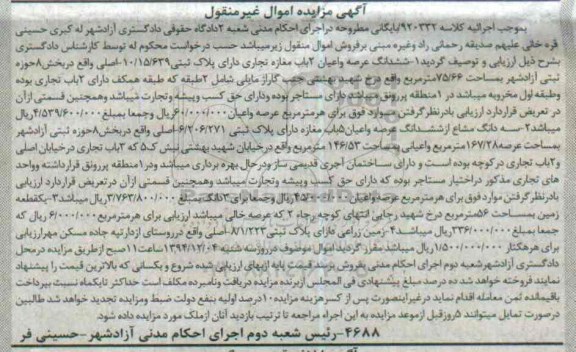 آگهی مزایده اموال غیرمنقول
بموجب اجرائیه کلاسه ۹۲۰۳۳۲/بایگانی مطروحه دراجرای احکام مدنی شعبه ۲دادگاه حقوقی دادگستری آزادشهر له کبری حسینی
قره خانی علیهم صدیقه رحمانی راد وغیره مبنی برفروش اموال منقول زیرمیباشد حسب درخواست محکوم له توسط کارشناس دادگستری
بشرح ذیل ارزیابی و توصیف گردید۱-ششدانگ عرصه واعیان ۲باب مغازه تجاری دارای پلاک ثبتی۱۰/۱۵/۶۳۹-اصلی واقع دربخش۸حوزه
ثبتی آزادشهر بمساحت ۷۵/۶۶مترمربع واقع درخ شهید بهشتی جنب گاراژ مایلی شامل ۲طبقه که طبقه همکف دارای ۲باب تجاری بوده
وطبقه اول مخروبه میباشد در۱منطقه پررونق میباشد دارای مستاجر بوده ودارای حق کسب وپیشه وتجارت میباشد وهمچنین قسمتی ازآن
در تعریض قراردارد ارزیابی بادرنظرگرفتن موارد فوق برای هرمترمربع عرصه واعیان ۶۰/۰۰۰/۰۰۰ریال وجمعا بمبلغ ۴/۵۳۹/۶۰۰/۰۰۰ریال
میباشد۲-سه دانگ مشاع ازششدانگ عرصه واعیان۵باب مغازه دارای پلاک ثبتی ۶/۲۰۶/۲۷۱-اصلی واقع دربخش۸حوزه ثبتی آزادشهر
بمساحت عرصه۱۶۷/۲۸مترمربع واعیانی بمساحت ۱۴۶/۵۳ مترمربع واقع درخیابان شهید بهشتی نبش ک۵ که ۳باب تجاری درخیابان اصلی
و۲باب تجاری درکوچه بوده است و دارای ساختمان آجری قدیمی ساز ودرحال بهره برداری میباشد ودر۱منطقه پررونق قرارداشته وواحد
های تجاری مذکور دراختیار مستاجر بوده که دارای حق کسب وپیشه وتجارت میباشد وهمچنین قسمتی ازآن درتعریض قراردارد ارزیابی
بادرنظرگرفتن موارد فوق برای هرمترمربع عرصه واعیان ۴۵/۰۰۰/۰۰۰ریال وجمعا برای۳دانگ بمبلغ ۳/۷۶۳/۸۰۰/۰۰۰ریال میباشد۳-یکقطعه
زمین بمساحت ۵۶مترمربع درخ شهید رجایی انتهای کوچه رجاء ۲ که عرصه خالی میباشد ارزیابی برای هرمترمربع ۶/۰۰۰/۰۰۰ریال که
جمعا بمبلغ ۳۳۶/۰۰۰/۰۰۰ریال میباشد۴-زمین زراعی دارای پلاک ثبتی۸/۱/۲۲۳-اصلی واقع درروستای ازدارتپه جاده مسکن مهرارزیابی
برای هرهکتار ۱/۵۰۰/۰۰۰/۰۰۰ریال میباشد مقرر گردید اموال موصوف درروزسه شنبه ۱۳۹۴/۱۲/۰۴ ساعت۱۱صبح ازطریق مزایده درمحل
دادگستری آزادشهرشعبه دوم اجرای احکام مدنی بفروش برسد قیمت پایه ازبهای ارزیابی شده شروع و بکسانی که بالاترین قیمت را پیشنهاد
نمایند فروخته خواهد شد ده درصد مبلغ پیشنهادی فی المجلس ازبرنده مزایده دریافت ونامبرده مکلف است حداکثر تایکماه نسبت بپرداخت
باقیمانده ثمن معامله اقدام نماید درغیراینصورت پس از کسرهزینه مزایده ۱۰درصد اولیه بنفع دولت ضبط ومزایده تجدید خواهد شد طالبین
درصورت تمایل میتوانند ۵روزقبل ازموعد مزایده به این اجراء مراجعه تا ترتیب بازدید آنان ازملک مورد مزایده داده شود.
۴۶۸۸-رئیس شعبه دوم اجرای احکام مدنی آزادشهر-حسینی فر